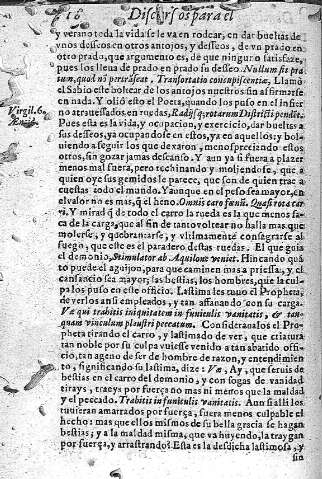 16 Discursos para el
y verano toda la vida se le va en rodear, en dar bueltas de
vnos desseos en otros antojos, y desseos, de vn prado en
otro prado, que argumento es, de que ninguno satisfaze,
pues los lleua de prado en prado su desseo. Nullum sit pra
tum, quod nõ pertrãseat. Transportatio concupiscentiæ, Llamò
el Sabio este boltear de los antojos nuestros sin afirmarse
en nada. Y oliò esto el Poeta, quando los puso en el infier
no atrauessados en ruedas, Radijsq; rotarum districti pendẽt.
Virgil. 6.
Æneid.
Pues esta es la vida, y ocupacion, y exercicio, dar bueltas a
sus desseos, ya ocupandose en estos, ya en aquellos; y bol
uiendo a seguir los que dexaron, menospreciando estos
otros, sin gozar jamas descanso. Y aun ya si fuera a plazer
menos mal fuera, pero rechinando y moliendose, que a
quien oye sus gemidos le parece, que son de quien trae a
cuestas todo el mundo. Y aunque en el peso sea mayor, en
el valor no es mas, q̃ el heno. Omnis caro fœnũ. Quasi rota car
ri. Y mirad q̃ de todo el carro la rueda es la que menos sa-
ca de la carga, que al fin de tanto voltear no halla mas, que
molerse, y quebrantarse, y vltimamente consagrarse al
fuego, que este es el paradero destas ruedas. El que guia
el demonio, Stimulator ab Aquilone veniet. Hincando quã
to puede el aguijon, para que caminen mas a priessa, y el
cansancio sea mayor; las bestias, los hombres, que la cul-
pa los puso en este oficio. Lastima les tuuo el Propheta,
de verlos ansi empleados, y tan affanando con su carga.
Væ qui trahitis iniquitatem in funiculis vanitatis, & tan-
quam vinculum plaustri peccatum. Considerauálos el Pro-
pheta tirando el carro, y lastimado de ver, que criatura
tan noble por su culpa vuiesse venido a tan abatido offi-
cio, tan ageno de ser de hombre de razon, y entendimien
to, significando su lastima, dize: Væ, Ay, que seruis de
bestias en el carro del demonio, y con sogas de vanidad
tirays, traeys por fuerça no mas ni menos que la maldad
y el pecado. Trahitis in funiculis vanitatis. Aun si alli los
tuuieran amarrados por fuerça, fuera menos culpable el
hecho: mas que ellos mismos de su bella gracia se hagan
bestias; y a la maldad misma, que va huyendo, la traygan
por fuerça, y arrastrando? Esta es la desdicha lastimosa, y
sin